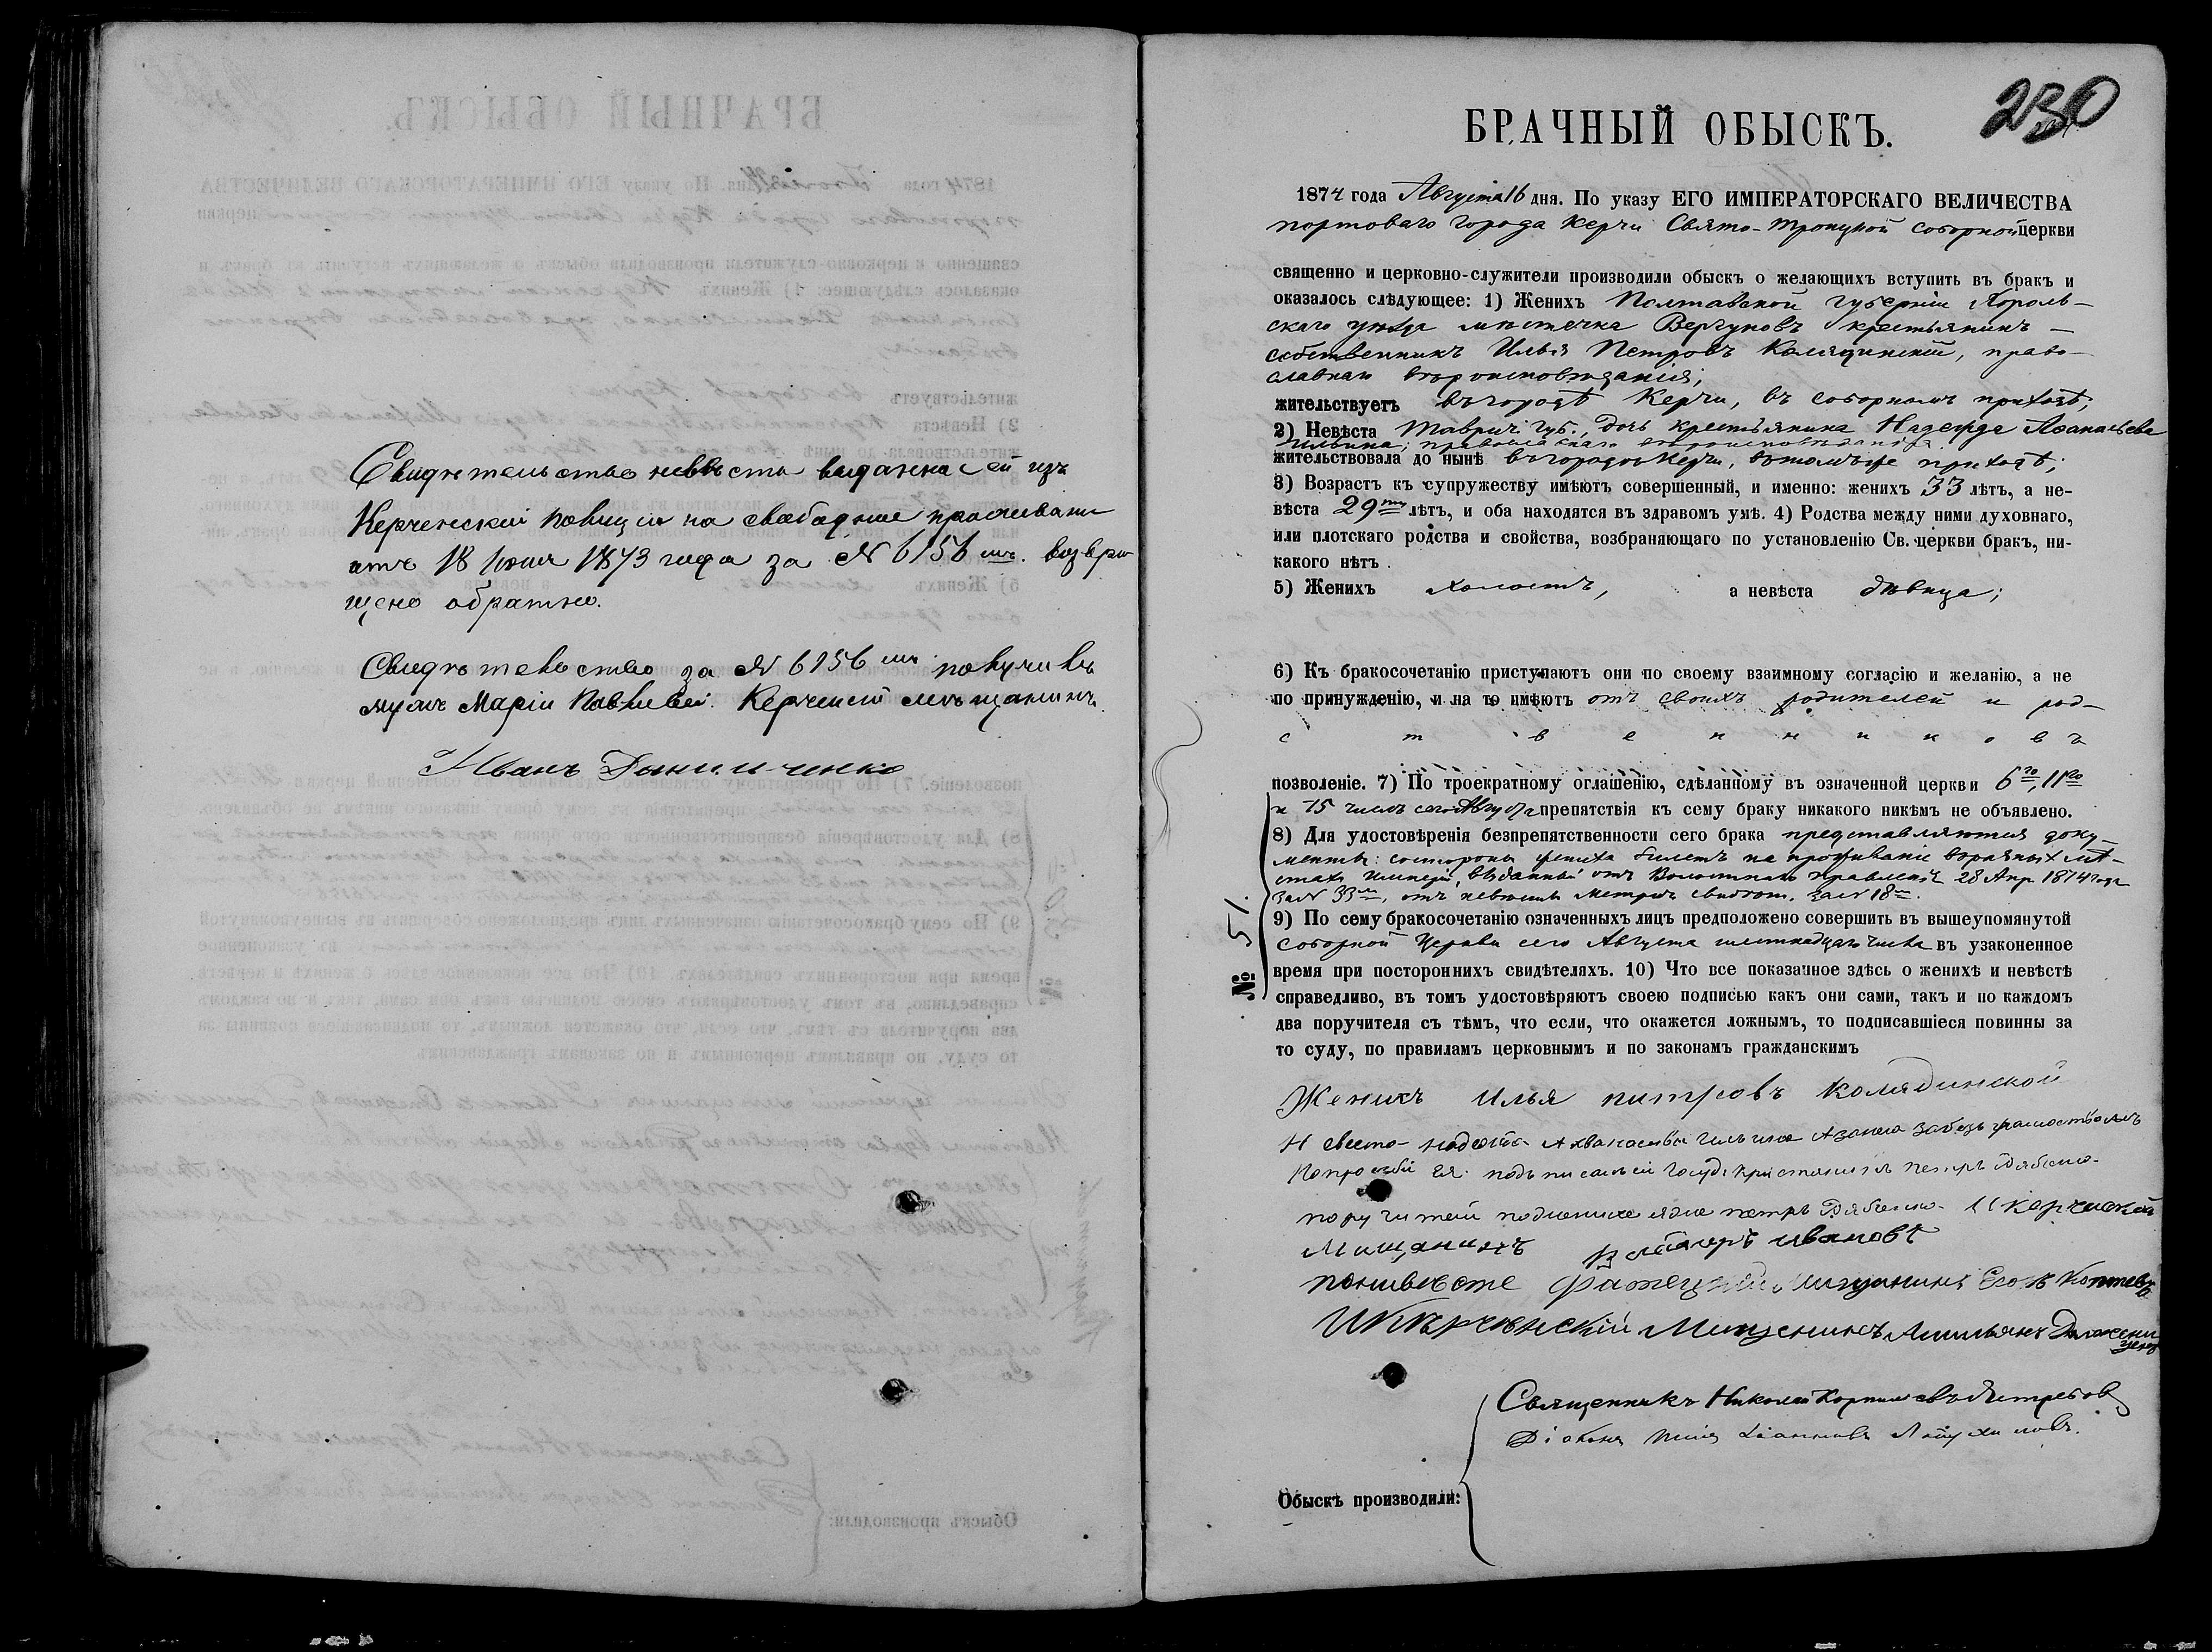 Свидѣтельство невѣсты выданное ей изъ
Керченской Полиціи на свободное проживаніе
отъ 18 Іюня 1873 года за № 6156мъ. возвра
щено обратно.
Свидѣтельство за № 6156мъ получилъ
мужъ Маріи Павловой. Керченскій мѣщанинъ
Иванъ Данильченко
230
БРАЧНЫЙ ОБЫСКЪ.
1874 года Августа 16 дня. По указу ЕГО ИМПЕРАТОРСКАГО ВЕЛИЧЕСТВА
портоваго города Керчи Свято-Троицкой соборной церкви
священно и церковно-служители производили обыскъ о желающихъ вступить въ бракъ и
оказалось слѣдующее: 1) Женихъ Полтавской губерніи Хороль-
скаго уѣзда мѣстечка Вергуновъ крестьянинъ —
собственникъ Илья Петровъ Колядинскій, право-
славнаго вѣроисповѣданія;
жительствуетъ въ городѣ Керчи, въ соборномъ приходѣ;
2) Невѣста Таврич. Губ., дочь крестьянина Надежда Аѳанасьева
Ильина; православнаго вѣроисповѣданія
жительствовала до нынѣ въ городѣ Керчи, въ томъ же приходѣ;
3) Возрастъ къ супружеству имѣютъ совершенный, и именно: женихъ 33 лѣтъ, а не-
вѣста 29ти лѣтъ, и оба находятся въ здравомъ умѣ. 4) Родства между ними духовнаго,
или плотскаго родства и свойства, возбраняющаго по установленію Св. церкви бракъ, ни-
какого нѣтъ.
5) Женихъ холостъ, а невѣста дѣвица;
6) Къ бракосочетанію приступаютъ они по своему взаимному согласію и желанію, а не
по принужденію, и на то имѣютъ отъ своихъ родителей и род-
с т в е н н и к о в ъ
позволеніе. 7) По троекратному оглашенію, сдѣланному въ означенной церкви 6го, 11го
и 15 числъ сего Августа препятствія къ сему браку никакого никѣмъ не объявлено.
8) Для удостовѣренія безпрепятственности сего брака представляются доку-
менты: со стороны жениха билетъ на проживаніе въ разныхъ мѣ-
стахъ Имперіи, выданный отъ Волостнаго правленія 28 Апр. 1874 года
за № 33м, отъ невѣсты метрич. свидѣт. за № 18м.
№ 51.
9) По сему бракосочетанію означенныхъ лицъ предположено совершить въ вышеупомянутой
соборной Церкви сего Августа шестнадцат. числа въ узаконенное
время при постороннихъ свидѣтеляхъ. 10) Что все показанное здѣсь о женихѣ и невѣстѣ
справедливо, въ томъ удостовѣряютъ своею подписью какъ они сами, такъ и по каждомъ
два поручителя съ тѣмъ, что если, что окажется ложнымъ, то подписавшіеся повинны за
то суду, по правиламъ церковнымъ и по законамъ гражданскимъ
Женихъ Илья питровъ Колядинской
Петръ
Мищанинъ ивановъ
понивѣсте Мищанинъ
Мищенинъ
Священникъ Николай Корнильевъ Ястребовъ
Діаконъ Іоанновъ
Обыскъ производили: